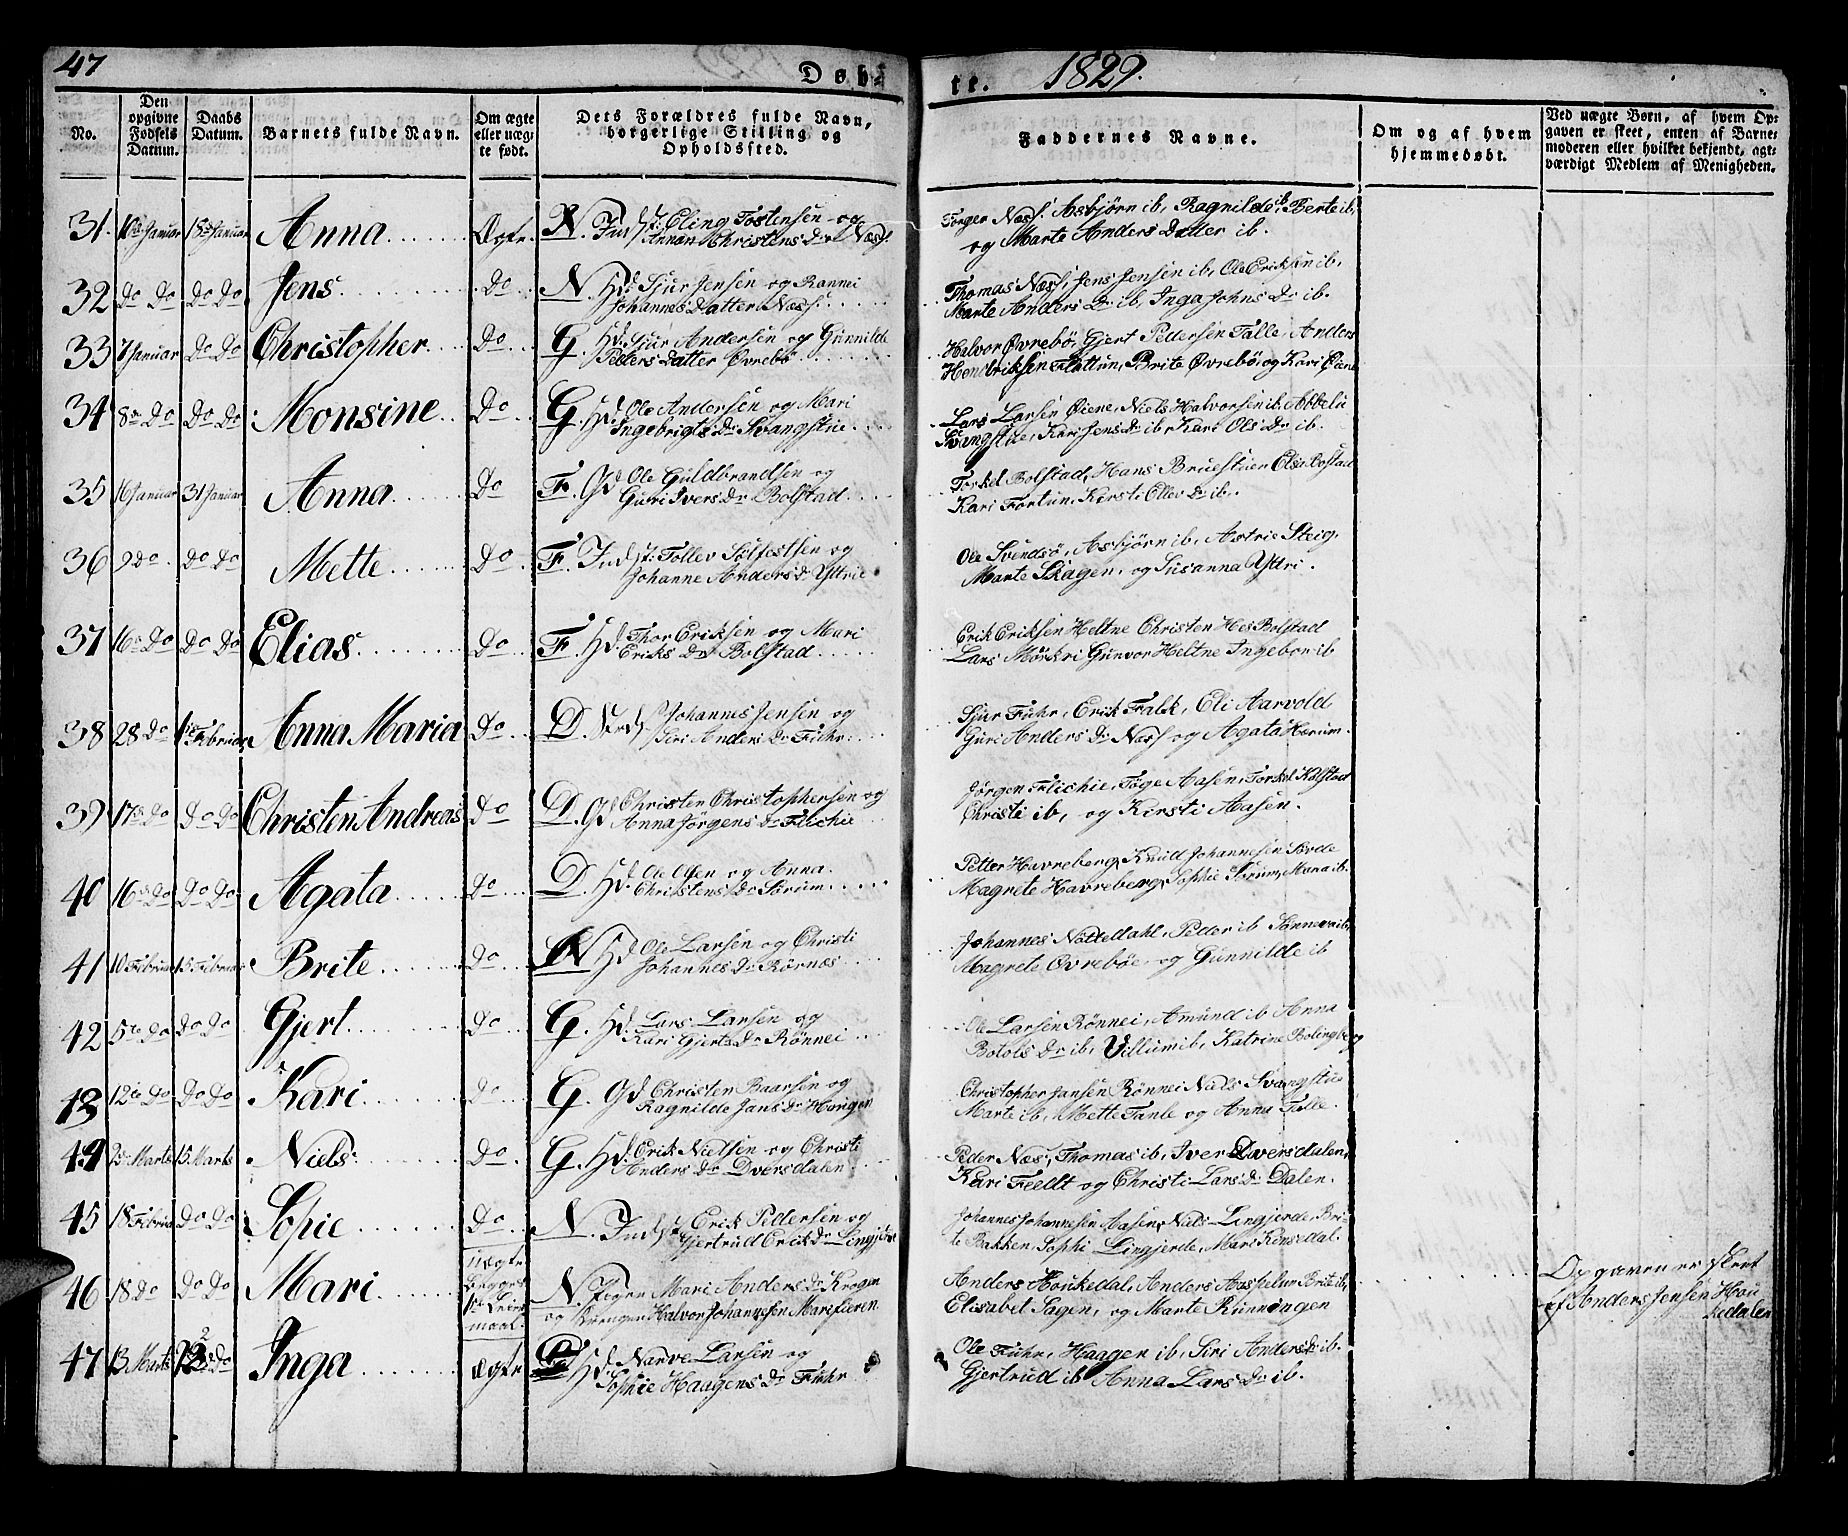 47
Døbte. 1829.
No. | Den opgivne Fødsels Datum. | Daabs Datum. | Barnets fulde Navn. | Om ægte eller uægte født. | Dets Forældres fulde Navn, borgerlige Stilling og Opholdssted. | Faddernes Navne. | Om og af hvem hjemmedøbt. | Ved uægte Børn, af hvem Opgaven er skeet, enten af Barnemoderen eller hvilket bekjendt, agtværdigt Medlem af Menigheden.
31. 10de Januar 18de Januar Anna Ægte. N. Indst: Eling Tostensen og
Anna Christens Dr Næss.
Torger Næss. Asbjørn ib, Ragnilde ib, Berte ib,
og Marte Anders Datter ib.
32 Do Do Do Do Jens Do N. Hd. Sjur Jensen og Ranni
Johannes Datter Næss.
Thomas Næss, Jens Jensen ib, Ole Eriksen ib,
Marte Anders Dr ib, Inga Johns Dr ib.
33 7 Januar Do Do Christopher Do G. Hd. Sjur Andersen og Gunnilde
Peders Datter Øvrebø
Halvor Øvrebø, Gjert Pedersen Talle, Anders
Hendriksen Flattun, Brite Øvrebø, og Kari Øiene
34 8de Do Do Do Monsine Do G. Hd. Ole Andersen og Mari
Ingebrigts Dr Svangstue
Lars Larsen Øiene, Niels Halvorsen ib. Abbelu
Svangstue, Kari Jens Dr ib, Kari Ols Dr ib.
35 16 Januar 31 Januar Anna Do F. Gd Ole Guldbrandsen og
Guri Ivers Dr Bolstad
Torkel Bolstad, Hans Bruestuen Else Bolstad
Kari Fortun, Kirsti Ellev Dr ib.
36 9 Do Do Do Mette Do F. Indst: Tollev Sølfestsen og
Johanne Anders Dr Yttrie
Ole Svendsø, Asbjørn ib, Astrie Steig,
Marte Skagen, og Susanna Yttri.
37 16 Do Do Do Elias Do F. Hd. Thor Eriksen og Mari
Eriks Dr Bolstad
Erik Eriksen Heltne Christen Hes Bolstad
Lars Mørkri Gunvor Heltne Ingebor ib
38 28 Do 1ste Februar Anna Maria Do D. Johannes Jensen og
Siri Anders Dr Fuhr
Sjur Fuhr, Erik Falk, Eli Aarvold
Guri Anders Dr Næss og Agata Hærum.
39 17de Do Do Do Christen Andreas Do D. Gd Christen Christophersen og
Anna Jørgens Dr Flichie
Jørgen Flichie, Tøge Aasen, Torkel Kalstad
Christi ib, og Kirsti Aasen.
40 16de Do Do Do Agata Do D. Hd. Ole Olsen og Anna
Christens Dr Sørum
Petter Havreberg, Knud Johannesen Sovde
Magrete Havreberg, Sophie Sørum, Mana ib.
41 10 Februar 15 Februar Brite Do N Hd Ole Larsen og Christi
Johannes Dr Rørnæs
Johannes Nottedahl, Peder ib Sønneva ib,
Magrete Øvrebøe, og Gunnilde ib
42 5te Do Do Do Gjert Do G. Hd. Lars Larsen og
Kari Gjerts Dr Rønnei
Ole Larsen Rønnei, Amund ib Anna
Botols Dr ib, Villum ib, Katrine Bolingberg
43 12te Do Do Do Kari Do G. Gd Christen Baarsen og
Ragnilde Jans Dr Haugen
Christopher Jansen Rønnei Niels Svangstue
Marte ib, Mette Tanle og Anna Talle.
44 2den Marts 15 Marts Niels Do G. Hd. Erik Nielsen og Christi
Anders Dr Dversdalen
Peder Næs, Thomas ib, Iver Dversdalen,
Kari Feellt og Christi Lars Dr Dalen.
45 18 Februar Do Do Sopie Do N. Indst Erik Pedersen og
Gjertrud Erick Dr Lingjerde
Johannes Johannesen Aasen, Niels Lingjerde, Bri-
te Bakken, Sophi Lingjerde, Mari Kinsedal.
46 18 Do Do Do Mari uægte Begges 1ste Leiermaal. N. Pigen Mari Anders Dr Krogen
og Drengen Halvor Johannesen Marifieren
Anders Houkedal, Anders Assselun Brite ib,
Elisabet Sagen, og Marte Kunningen
Opgaven er skeet
af Anders Jensen Hou
kedalen
47 13 Marts 22 Do Inga ægte Hd. Narve Larsen og
Sophie Haagens Dr Fuhr
Ole Fuhr, Haagen ib, Siri Anders Dr ib.
Gjertrud ib Anna Lars Dr ib.